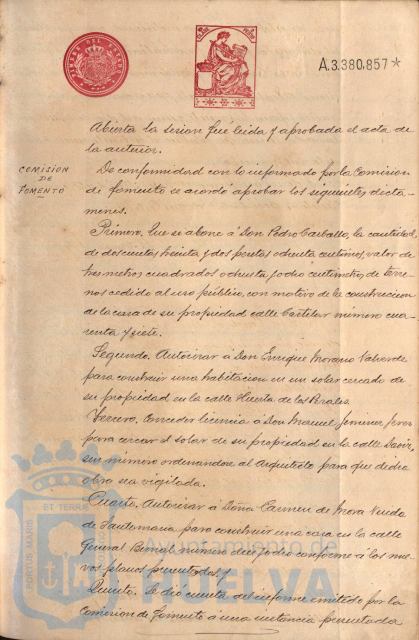 TIMBRE DEL ESTADO
A.3.380.857*
Abierta la sesion fué leida y aprobada el acta de
la anterior.
COMISION
DE
FOMENTO
De conformidad con lo informado por la Comision
de fomento se acordó aprobar los siguientes dictá-
menes.
Primero. Que se abone á Don Pedro Carballo, la cantidad
de doscientas treinta y dos pesetas ochenta centimos, valor de
tres metros cuadrados ochenta y ocho centimetros de terre-
nos cedido al uso público, con motivo de la construccion
de la casa de su propiedad calle Castelar número cua-
renta y siete.
Segundo. Autorizar á Don Enrique Moreno Valverde
para construir una habitacion en un solar cercado de
su propiedad en la calle Huerta de los Perales.
Tercero. Conceder licencia á Don Manuel Jimenez
para cercar el solar de su propiedad en la calle
sin número ordenandose al Arquitecto para que dicha
obra sea vigilada.
Cuarto. Autorizar á Doña Carmen de Mora Viuda
de Santamaria para construir una casa en la calle
General Bernal número diez y ocho conforme á los nue-
vos planos presentados y
Quinto. Se dio cuenta del informe emitido por la
Comision de Fomento á una instancia presentada
PORTUS MARIS ET TERRAE
Ayuntamiento de
HUELVA